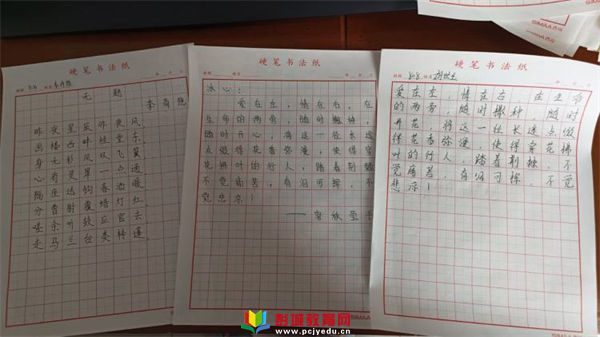 硬笔书法纸
无题
李商隐
昨夜星辰昨夜风
画楼西畔桂堂东
身无彩凤双飞翼
心有灵犀一点通
隔座送钩春酒暖
分曹射覆蜡灯红
嗟余听鼓应官去
走马兰台类转蓬
硬笔书法纸
冰心:
爱在左,情在右,在
生命的两旁,随时撒种,
随时开花,将这一径长途
点缀得香花弥漫,使得穿
花拂叶的行人,踏着荆棘
不觉痛苦,有泪可挥,不
觉悲凉!
硬笔书法纸
爱在左,情在右 在生命
的两旁,随时撒种,随时
开花,将这一径长途点缀
得香花弥漫,使得穿花拂
叶的行人,踏着荆棘,不
觉痛苦,有泪可挥,不觉
悲凉!
彭城教育网
www.pcjyedu.cn